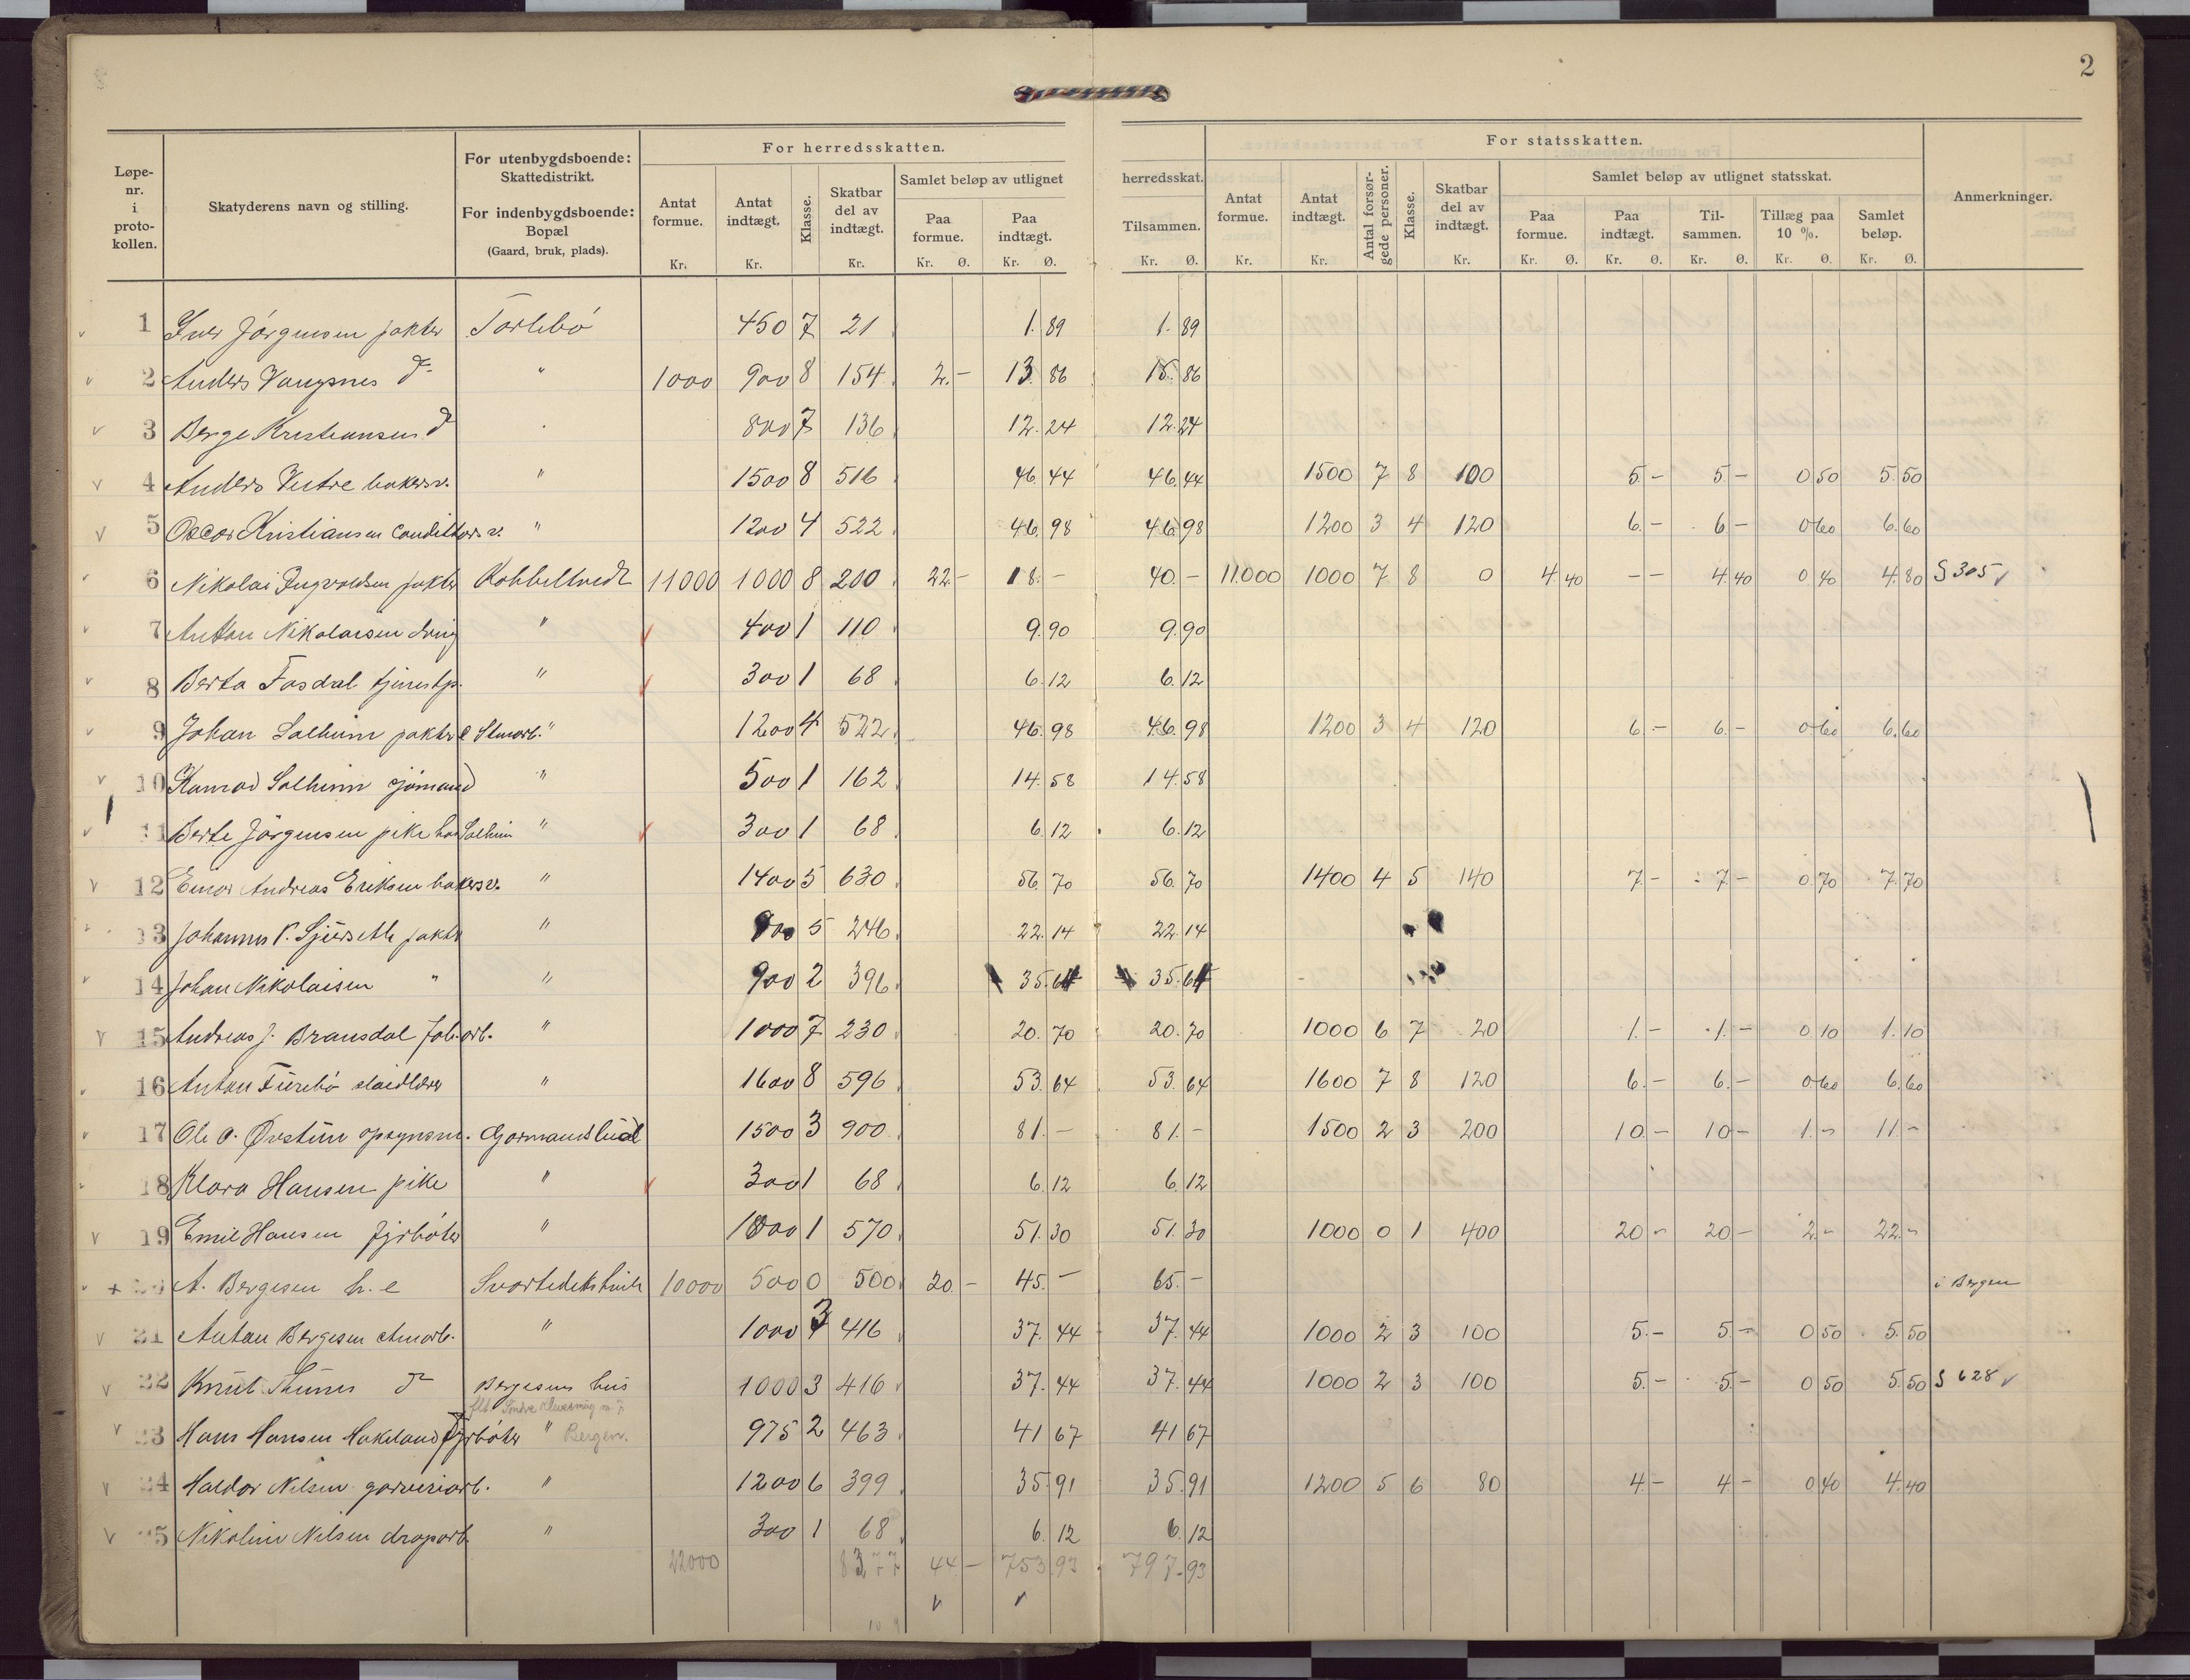 2
Løpe-nr. i proto-kollen. Skatyderens navn og stilling. For utenbygdsboende: Skattedistrikt. For indenbygdsboende: Bopæl (Gaard, bruk, plads). For herredsskatten. Antat formue. Kr. Antat indtægt. Kr. Klasse. Skatbar del av indtægt. Kr. Samlet beløp av utlignet Paa formue. Kr. Ø. Paa indtægt. Kr. Ø. herredsskat. Tilsammen. Kr. Ø. For statsskatten. Antat formue. Kr. Antat indtægt. Kr. Antal forsør-gede personer. Klasse. Skatbar del av indtægt. Kr. Samlet beløp av utlignet statsskat. Paa formue. Kr. Ø. Paa indtægt. Kr. Ø. Til-sammen. Kr. Ø. Tillæg paa 10 %. Kr. Ø. Samlet beløp. Kr. Ø. Anmerkninger.
1 Iver Jörgensen jakter Torlebö 450 7 21 1.89 1.89
2 Anders Vangsnes do " 1000 900 8 154 2.- 13.86 15.86
3 Berge Kristiansen do 800 7 136 12.24 12.24
4 Anders Vestre bakersv. " 1500 8 516 46.44 46.44 1500 7 8 100 5.- 5.- 0.50 5.50
5 Oscar Kristiansen Conditors v. " 1200 4 522 46.98 46.98 1200 3 4 120 6.- 6.- 0.60 6.60
6 Nikolai Ingvoldsen jakter Kobbeltvedt 11000 1000 8 200 22.- 18.- 40.- 11.000 1000 7 8 0 4.40 -- 4.40 0.40 4.80 S 305 ✓
7 Anton Nikolaisen dreng " 400 1 110 9.90 9.90
8 Berta Fosdal tjenestp. " 300 1 68 6.12 6.12
9 Johan Solheim jakter & Stenarb. " 1200 4 522 46.98 46.98 1200 3 4 120 6.- 6.- 0.60 6.60
10 Konrad Solheim sjömand " 500 1 162 14.58 14.58
11 Berte Jörgensen pike hos Solheim " 300 1 68 6.12 6.12
12 Einar Andreas Eriksen bakersv. " 1400 5 630 56.70 56.70 1400 4 5 140 7.- 7.- 0.70 7.70
13 Johannes P. jakter " 900 5 246 22.14 22.14
14 Johan Nikolaisen " " 900 2 396 35.64 35.64
15 Andreas J. Bransdal fab.arb. " 1000 7 230 20.70 20.70 1000 6 7 20 1.- 1.- 0.10 1.10
16 Anton Furebö " 1600 8 596 53.64 53.64 1600 7 8 120 6.- 6.- 0.60 6.60
17 Ole O. Øvstun opsynsm. 1500 3 900 81.- 81.- 1500 2 3 200 10.- 10.- 1.- 11.-
18 Klara Hansen pike " 300 1 68 6.12 6.12
19 Emil Hansen fyrböter " 1000 1 570 51.30 51.30 1000 0 1 400 20.- 20.- 2.- 22.-
+ 20 A. Bergesen h.e Svartediks 10000 500 0 500 20.- 45.- 65.- i Bergen
21 Anton Bergesen Stenarb. " 1000 3 416 37.44 37.44 1000 2 3 100 5.- 5.- 0.50 5.50
22 Knut do Bergesens hus 1000 3 416 37.44 37.44 1000 2 3 100 5.- 5.- 0.50 5.50 S 628 ✓
23 Hans Hansen Hakeland fyrböter " Bergen. 975 2 463 41.67 41.67
24 Haldor Nilsen garveriarb. " 1200 6 399 35.91 35.91 1200 5 6 80 4.- 4.- 0.40 4.40
25 Nikoline Nilsen " 300 1 68 6.12 6.12
22000 44.- 753.93 797.93